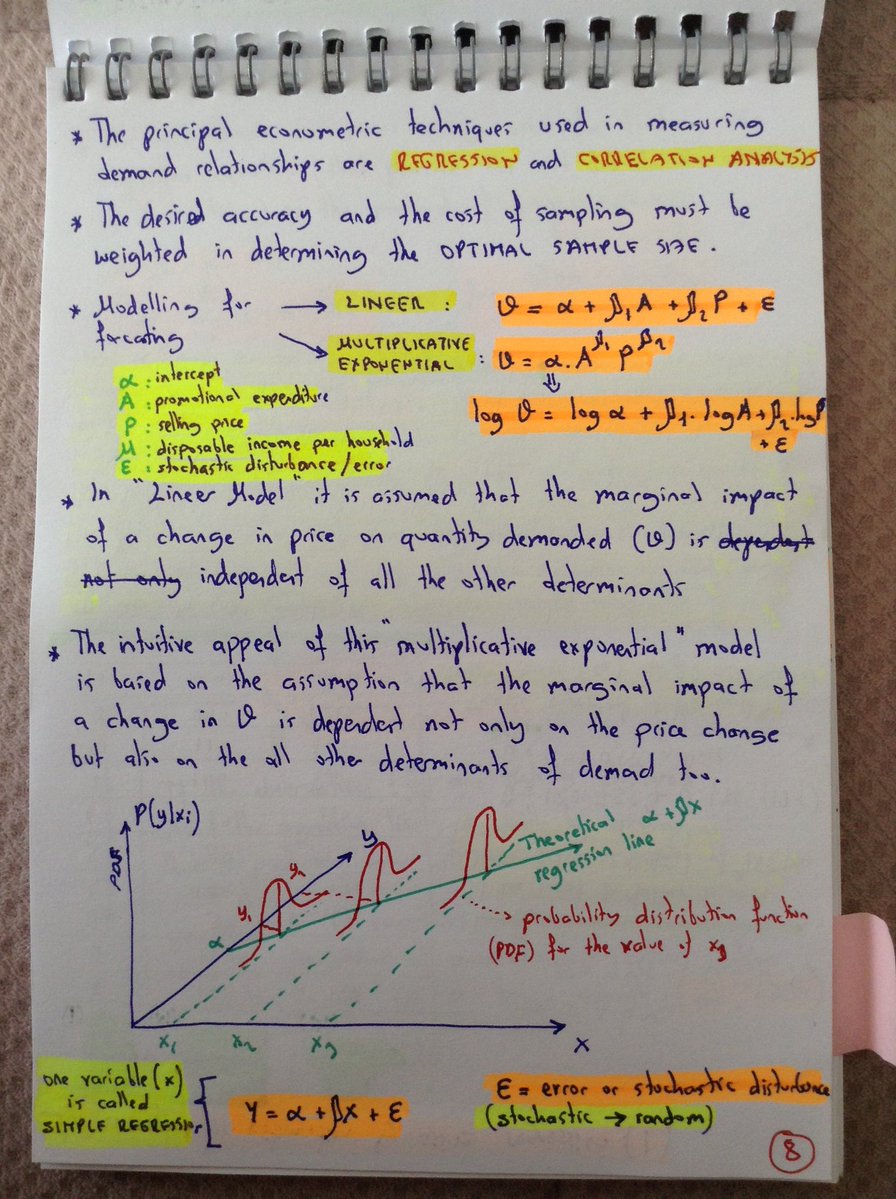 * The principal econometric techniques used in measuring
demand relationships are REGRESSION and CORRELATION ANALYSIS
* The desired accuracy and the cost of sampling must be
weighted in determining the OPTIMAL SAMPLE SIZE.
* Modelling for → LINEER : ϑ = α + β₁A + β₂P + ε
forcating → MULTIPLICATIVE
EXPONENTIAL : ϑ = α.A^β₁ P^β₂
⇓
log ϑ = log α + β₁. log A + β₂.log P
+ ε
α : intercept
A : promotional expenditure
P : selling price
M : disposable income per household
ε : stochastic disturbance/error
* In "Lineer Model" it is assumed that the marginal impact
of a change in price on quantity demanded (ϑ) is dependent
not only independent of all the other determinants
* The intuitive appeal of this "multiplicative exponential" model
is based on the assumption that the marginal impact of
a change in ϑ is dependent not only on the price change
but also on the all other determinants of demad too.
P(y|xi)
PDF
y
y₁
y₂
α
Theoretical α + βx
regression line
probability distribution function
(PDF) for the value of x₃
x₁ x₂ x₃
X
one variable (x)
is called
SIMPLE REGRESSION
Y = α + βX + ε
ε = error or stochastic disturbance
(stochastic → random)
8